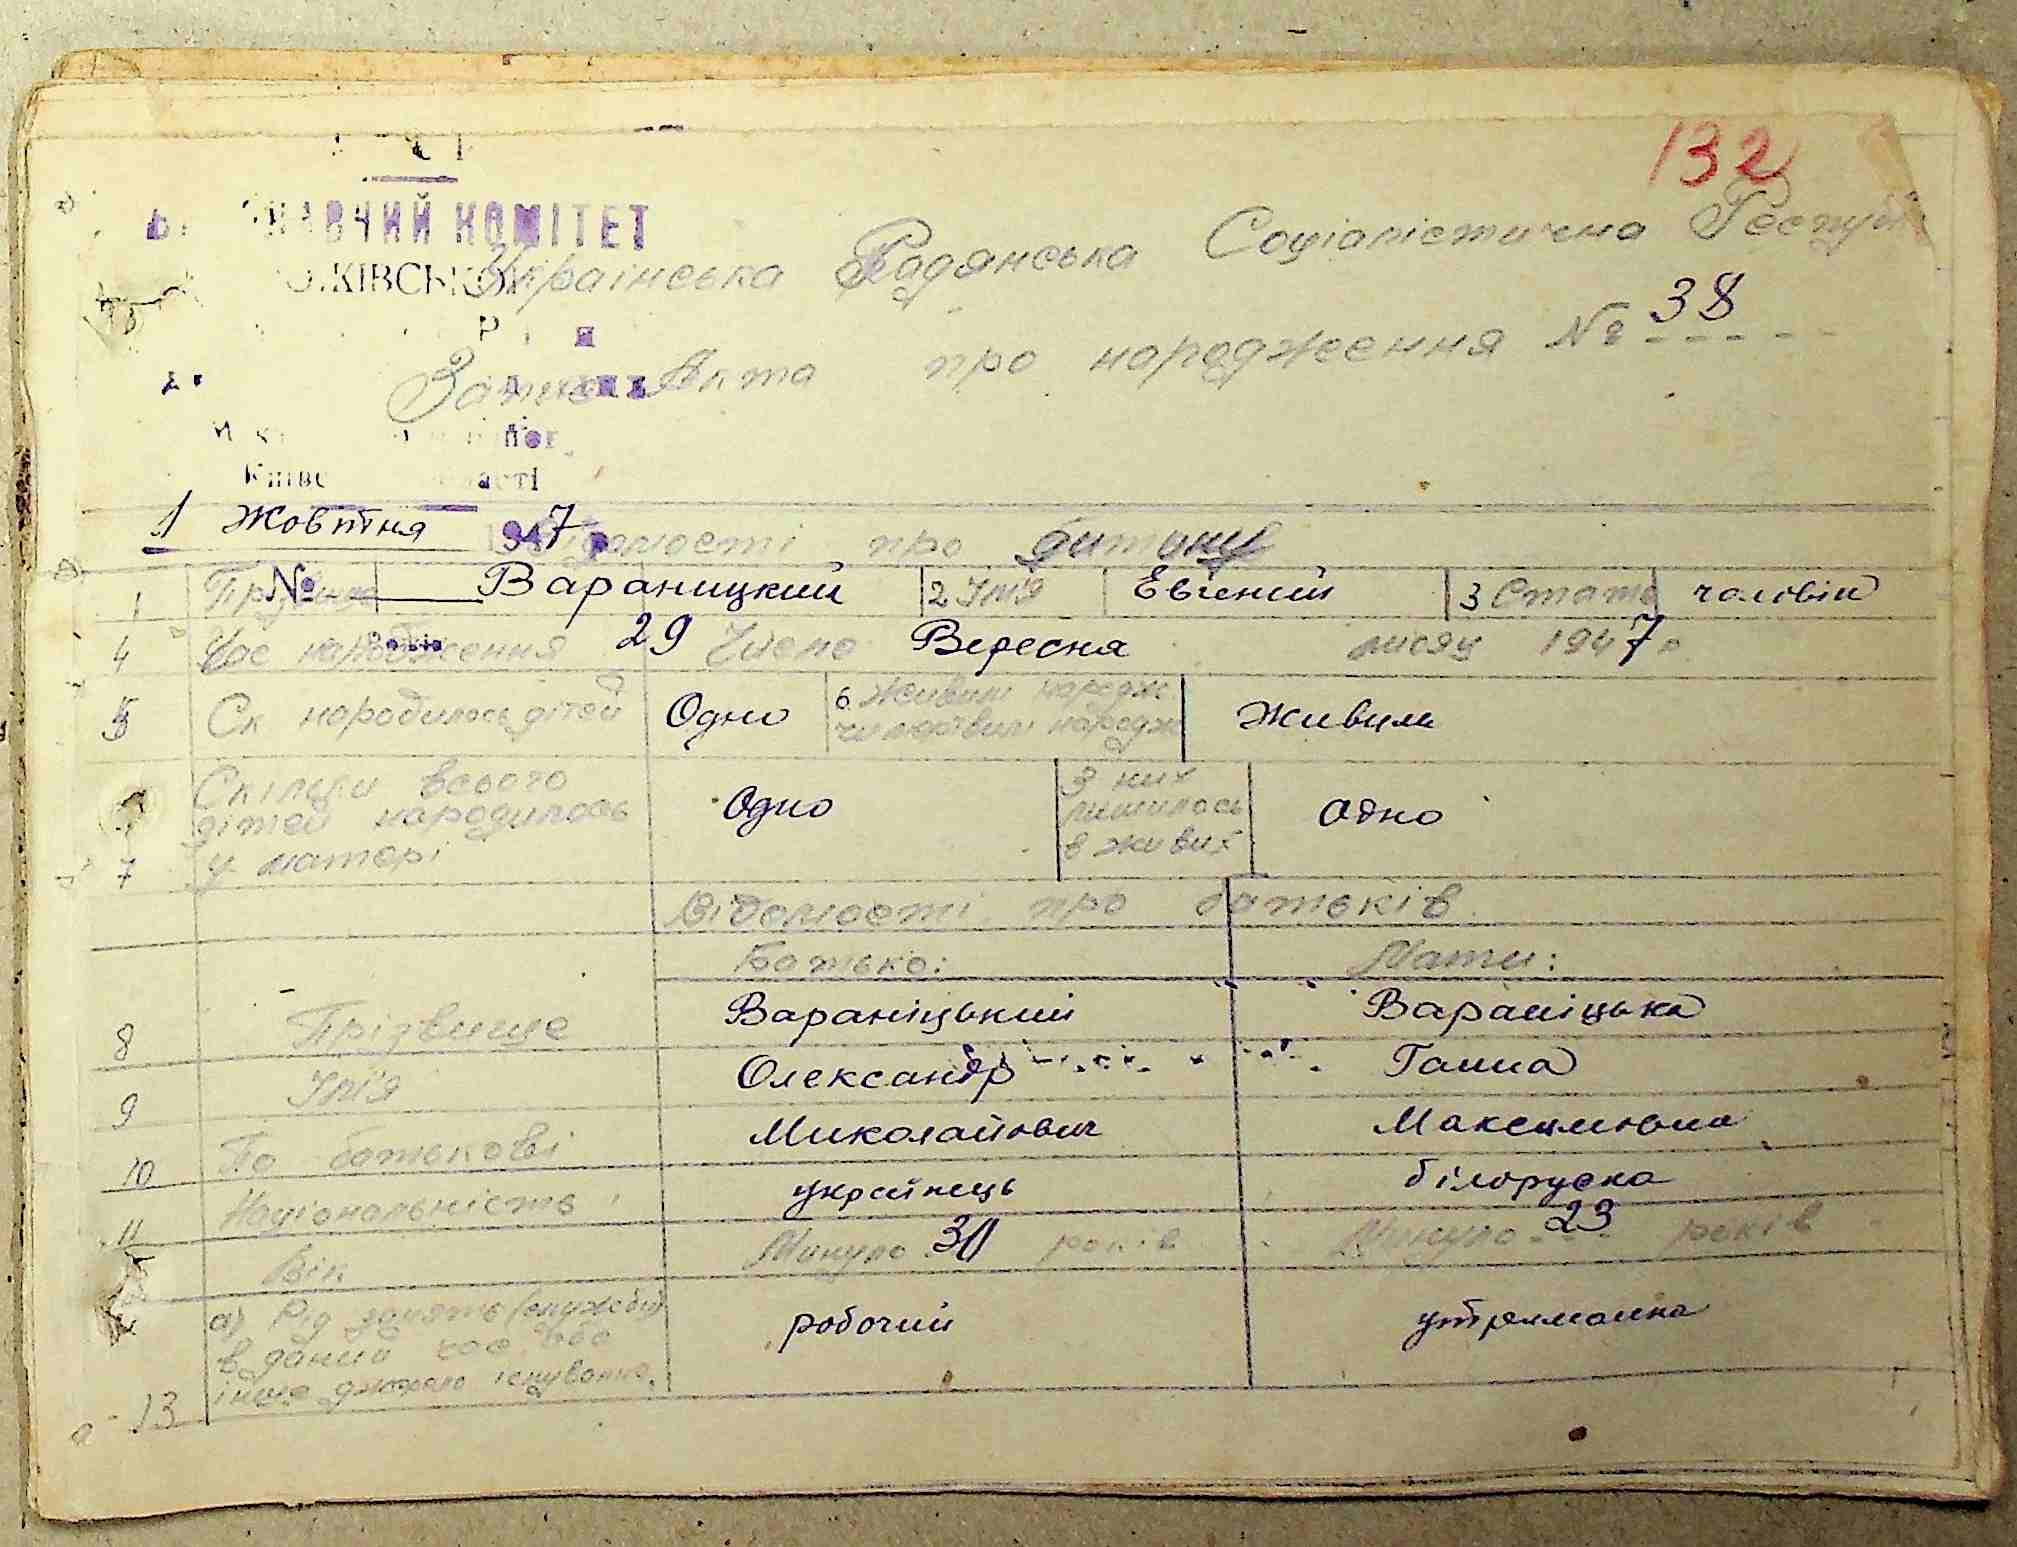 132
КОМІТЕТ
Українська Радянська Соціалістична
Запис Акта про народження № 38
1 Жовтня 1947 р
Відомості про дитину
1 № Вараницкий 2 Імʼя Евгений 3 Стать чоловік
4 Час народження 29 Число Вересня місяц 1947 р
5 Ск народилось дітей Одно 6 Живим народж. Живим
чи мертвим народж
Скільки всього З них
дітей народилось Одно лишилось Одно
7 у матері в живих
Відомості про батьків
Батько: Мати:
8 Прізвище Вараніцький Вараніцька
9 Імʼя Олександр Ганна
10 По батькові Миколайович Максимовна
11 Національність українець білоруска
Вік Минуло 30 років Минуло 23 років
а) Рід занять (служби)
в даний час або робочий утриманка
13 інше джерело існування.